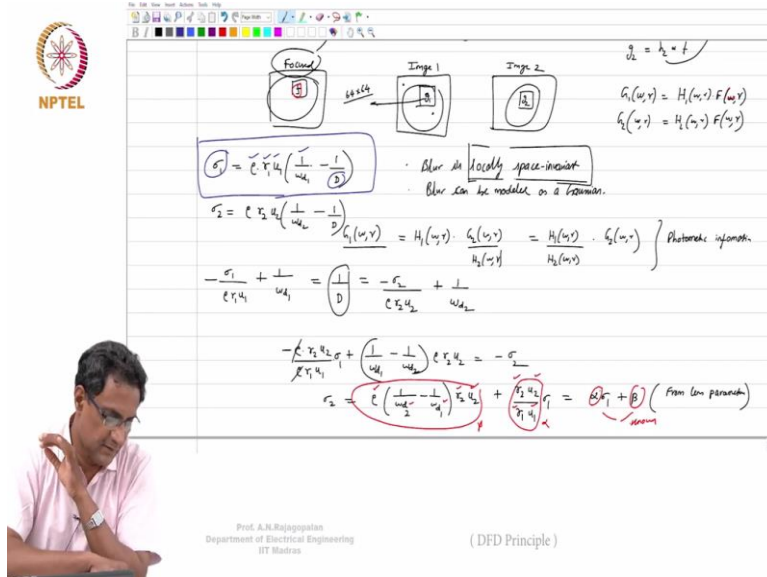 File Edit View Insert Actions Tools Help
Page Width
B I
NPTEL
g₂ = h₂ * f
Focused
Image 1
Image 2
f
64x64
g₁
g₂
G₁(w,v) = H₁(w,v) · F(w,v)
G₂(w,v) = H₂(w,v) F(w,v)
σ₁ = ρ · r₁ u₁ (1/wd₁ - 1/D)
· Blur is locally space-invariant
· Blur can be modeled as a Gaussian.
σ₂ = ρ r₂ u₂ (1/wd₂ - 1/D)
G₁(w,v) = H₁(w,v) · G₂(w,v)/H₂(w,v) = H₁(w,v)/H₂(w,v) · G₂(w,v) } Photometric information
-σ₁/ρr₁u₁ + 1/wd₁ = 1/D = -σ₂/ρr₂u₂ + 1/wd₂
-ρ·r₂u₂/ρr₁u₁ σ₁ + (1/wd₁ - 1/wd₂) ρ r₂ u₂ = -σ₂
σ₂ = ρ (1/wd₂ - 1/wd₁) r₂ u₂ + r₂u₂/r₁u₁ σ₁ = α σ₁ + β (From lens parameters)
β α known
Prof. A.N.Rajagopalan
Department of Electrical Engineering
IIT Madras
( DFD Principle )